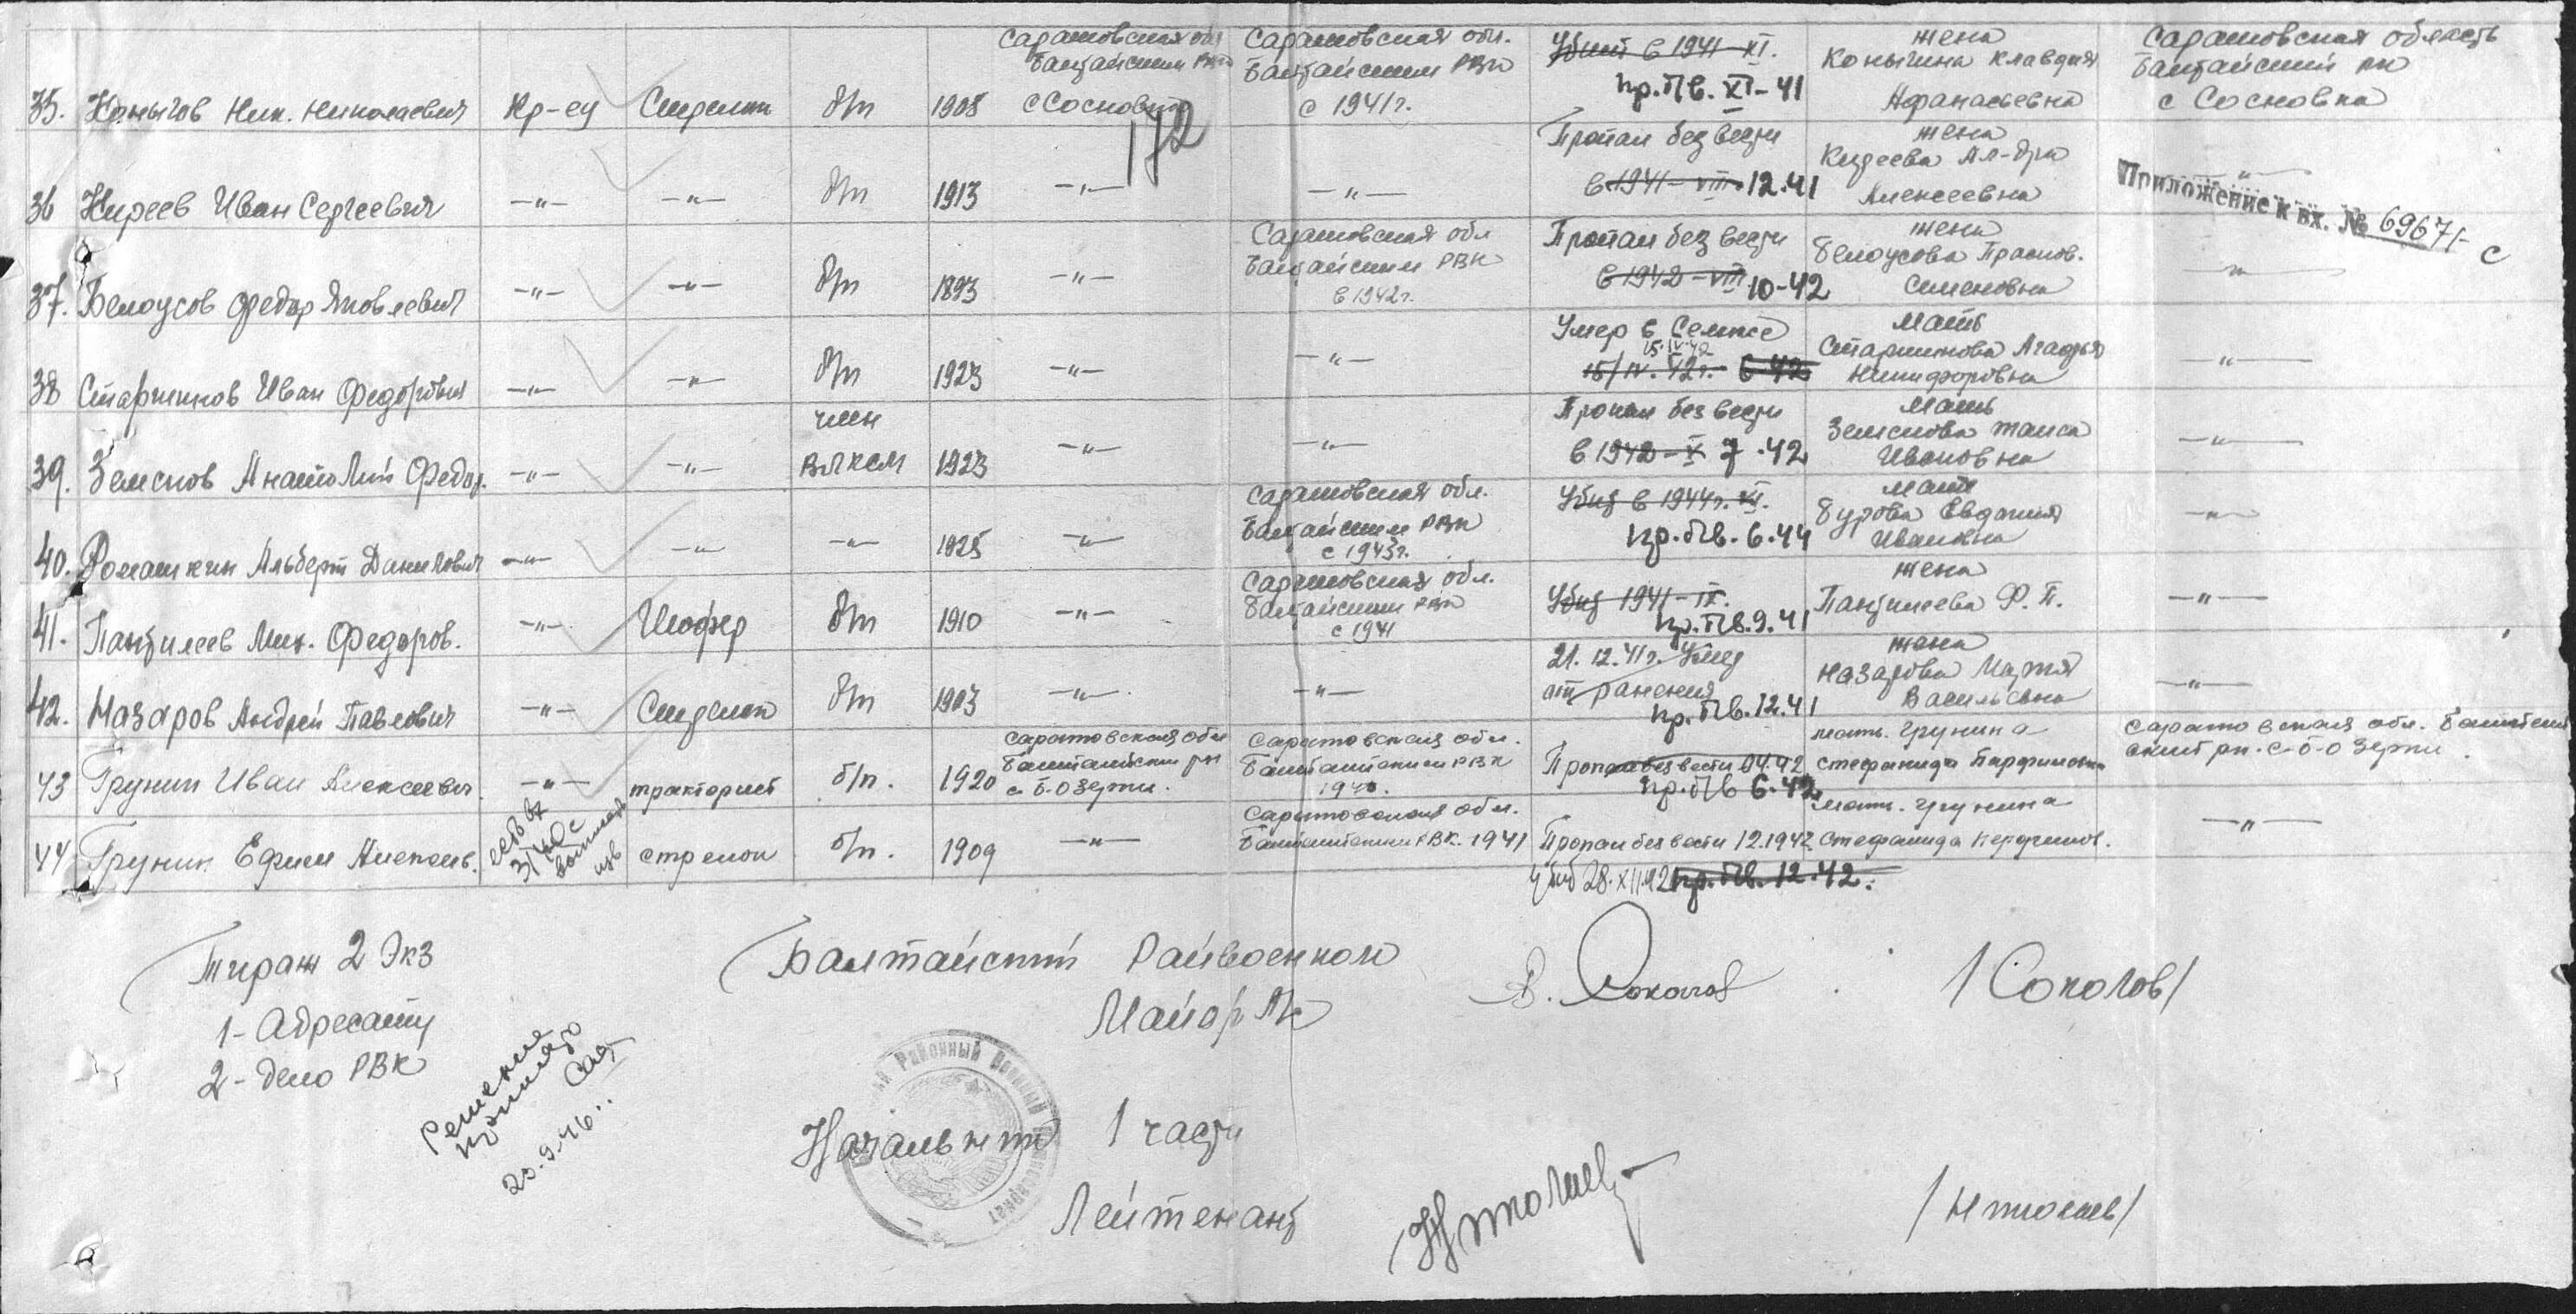 35. Конычов Ник. Николаевич Кр-ец Стрелок б/п 1908 Саратовская обл Балтайским РВК с Сосновка Саратовская обл. Балтайским РВК с 1941г. Убит в 1941-XI. пр.б/в. XI-41 жена Конычина Клавдия Афанасьевна Саратовская область Балтайский рн с Сосновка
172
36 Киреев Иван Сергеевич -"- -"- б/п 1913 -"- -"- Пропал без вести в 1941-VIII 12.41 жена Киреева Ал-дра Алексеевна -"-
Приложение к вх. № 69671-с
37. Белоусов Федор Яковлевич -"- -"- б/п 1893 -"- Саратовская обл Балтайским РВК в 1942г. Пропал без вести в 1942-VIII 10-42 жена Белоусова Прасков. Семеновна -"-
38 Старшинов Иван Федорович -"- -"- б/п 1923 -"- -"- Умер в Семье 15.IV.42 15/IV.42г. 6-42 мать Старшинова Агафья Никифоровна -"-
39. Земсков Анатолий Федор. -"- -"- член ВЛКСМ 1923 -"- -"- Пропал без вести в 1942-V 7.42 мать Земскова Таиса Ивановна -"-
40. Ромашкин Альберт Данилович -"- -"- -"- 1925 -"- Саратовская обл. Балтайским РВК с 1943г. Убит в 1944г. XI. пр.б/в. 6.44 мать Бурова Евдокия Ивановна -"-
41. Пантилеев Мих. Федоров. -"- Шофер б/п 1910 -"- Саратовская обл. Балтайским РВК с 1941 Убит 1941-IX. пр.б/в.9.41 жена Пантилеева Ф.П. -"-
42. Назаров Андрей Павлович -"- Стрелок б/п 1903 -"- -"- 21.12.41г. Умер от ранения пр.б/в.12.41 жена Назарова Мария Васильевна -"-
43 Грунин Иван Алексеевич -"- тракторист б/п. 1920 Саратовская обл Балтайский рн с. Б-Озерки. Саратовская обл. Балтайским РВК 1940. Пропал без вести 04.42 пр.б/в 6.42 мать. Грунина Стефанида Парфиловна Саратовская обл. Балтайский рн. с-Б-Озерки.
44 Грунин Ефим Алексеев. есть вх 3/40с стрелок б/п. 1909 -"- Саратовская обл. Балтайским РВК. 1941 Пропал без вести 12.1942 Убит 28.XII.42 пр.б/в. 12.42. мать. Грунина Стефанида -"-
Тираж 2 Экз
1- Адресату
2- дело РВК
Балтайский Райвоенком
Майор
В. Соколов /Соколов/
23.9.46.
Районный Военный Комиссариат
Начальник 1 части
Лейтенант